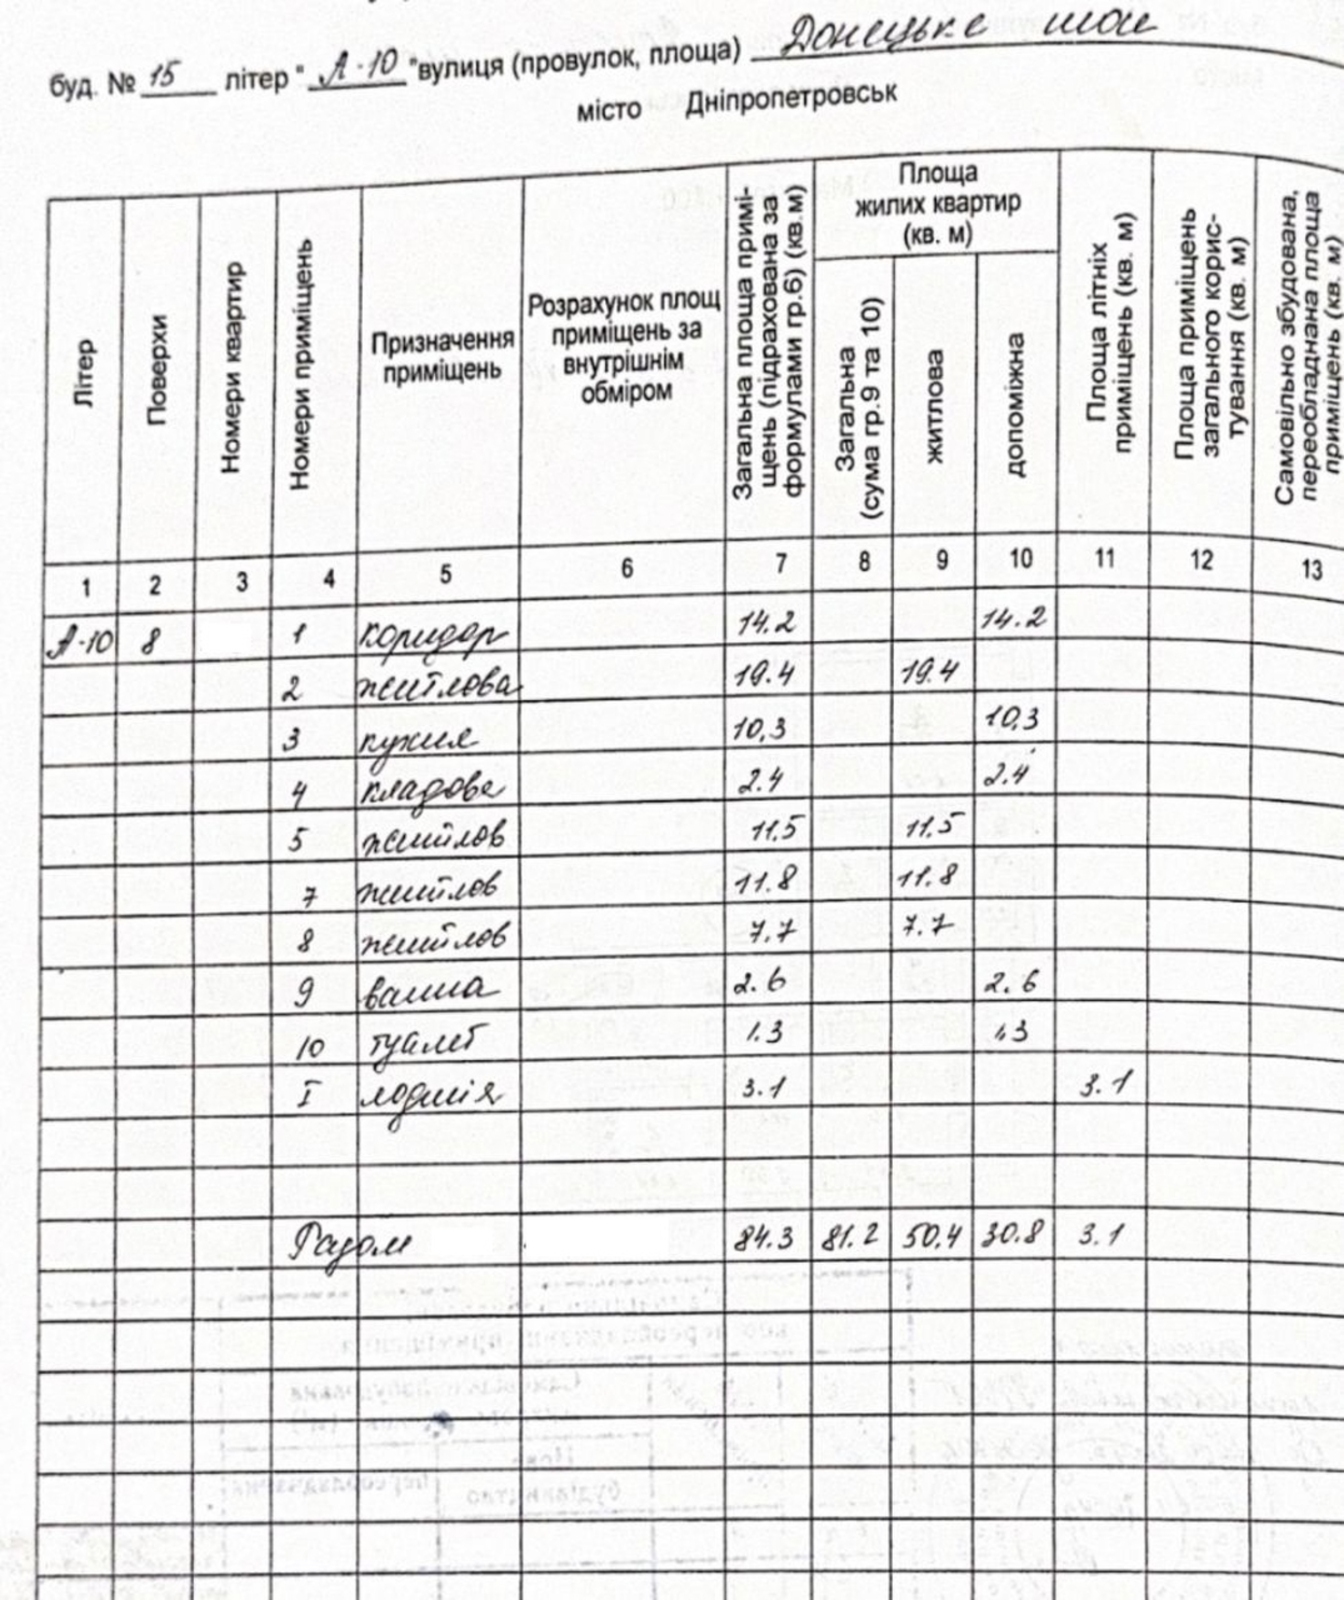 буд. № 15 літер " А-10 " вулиця (провулок, площа) Донецьке шосе
місто Дніпропетровськ
Літер
Поверхи
Номери квартир
Номери приміщень
Призначення приміщень
Розрахунок площ приміщень за внутрішнім обміром
Загальна площа примі-
щень (підрахована за
формулами гр.6) (кв.м)
Площа
жилих квартир
(кв. м)
Загальна
(сума гр.9 та 10)
житлова
допоміжна
Площа літніх
приміщень (кв. м)
Площа приміщень
загального корис-
тування (кв. м)
Самовільно збудована,
переобладнана площа
приміщень (кв. м)
1 2 3 4 5 6 7 8 9 10 11 12 13
А-10 8 1 коридор 14.2 14.2
2 житлова 19.4 19.4
3 кухня 10,3 10,3
4 кладова 2.4 2.4
5 житлов 11.5 11.5
7 житлов 11.8 11.8
8 житлов 7.7 7.7
9 ванна 2.6 2.6
10 туалет 1.3 1.3
I лоджія 3.1 3.1
Разом 84.3 81.2 50,4 30.8 3.1